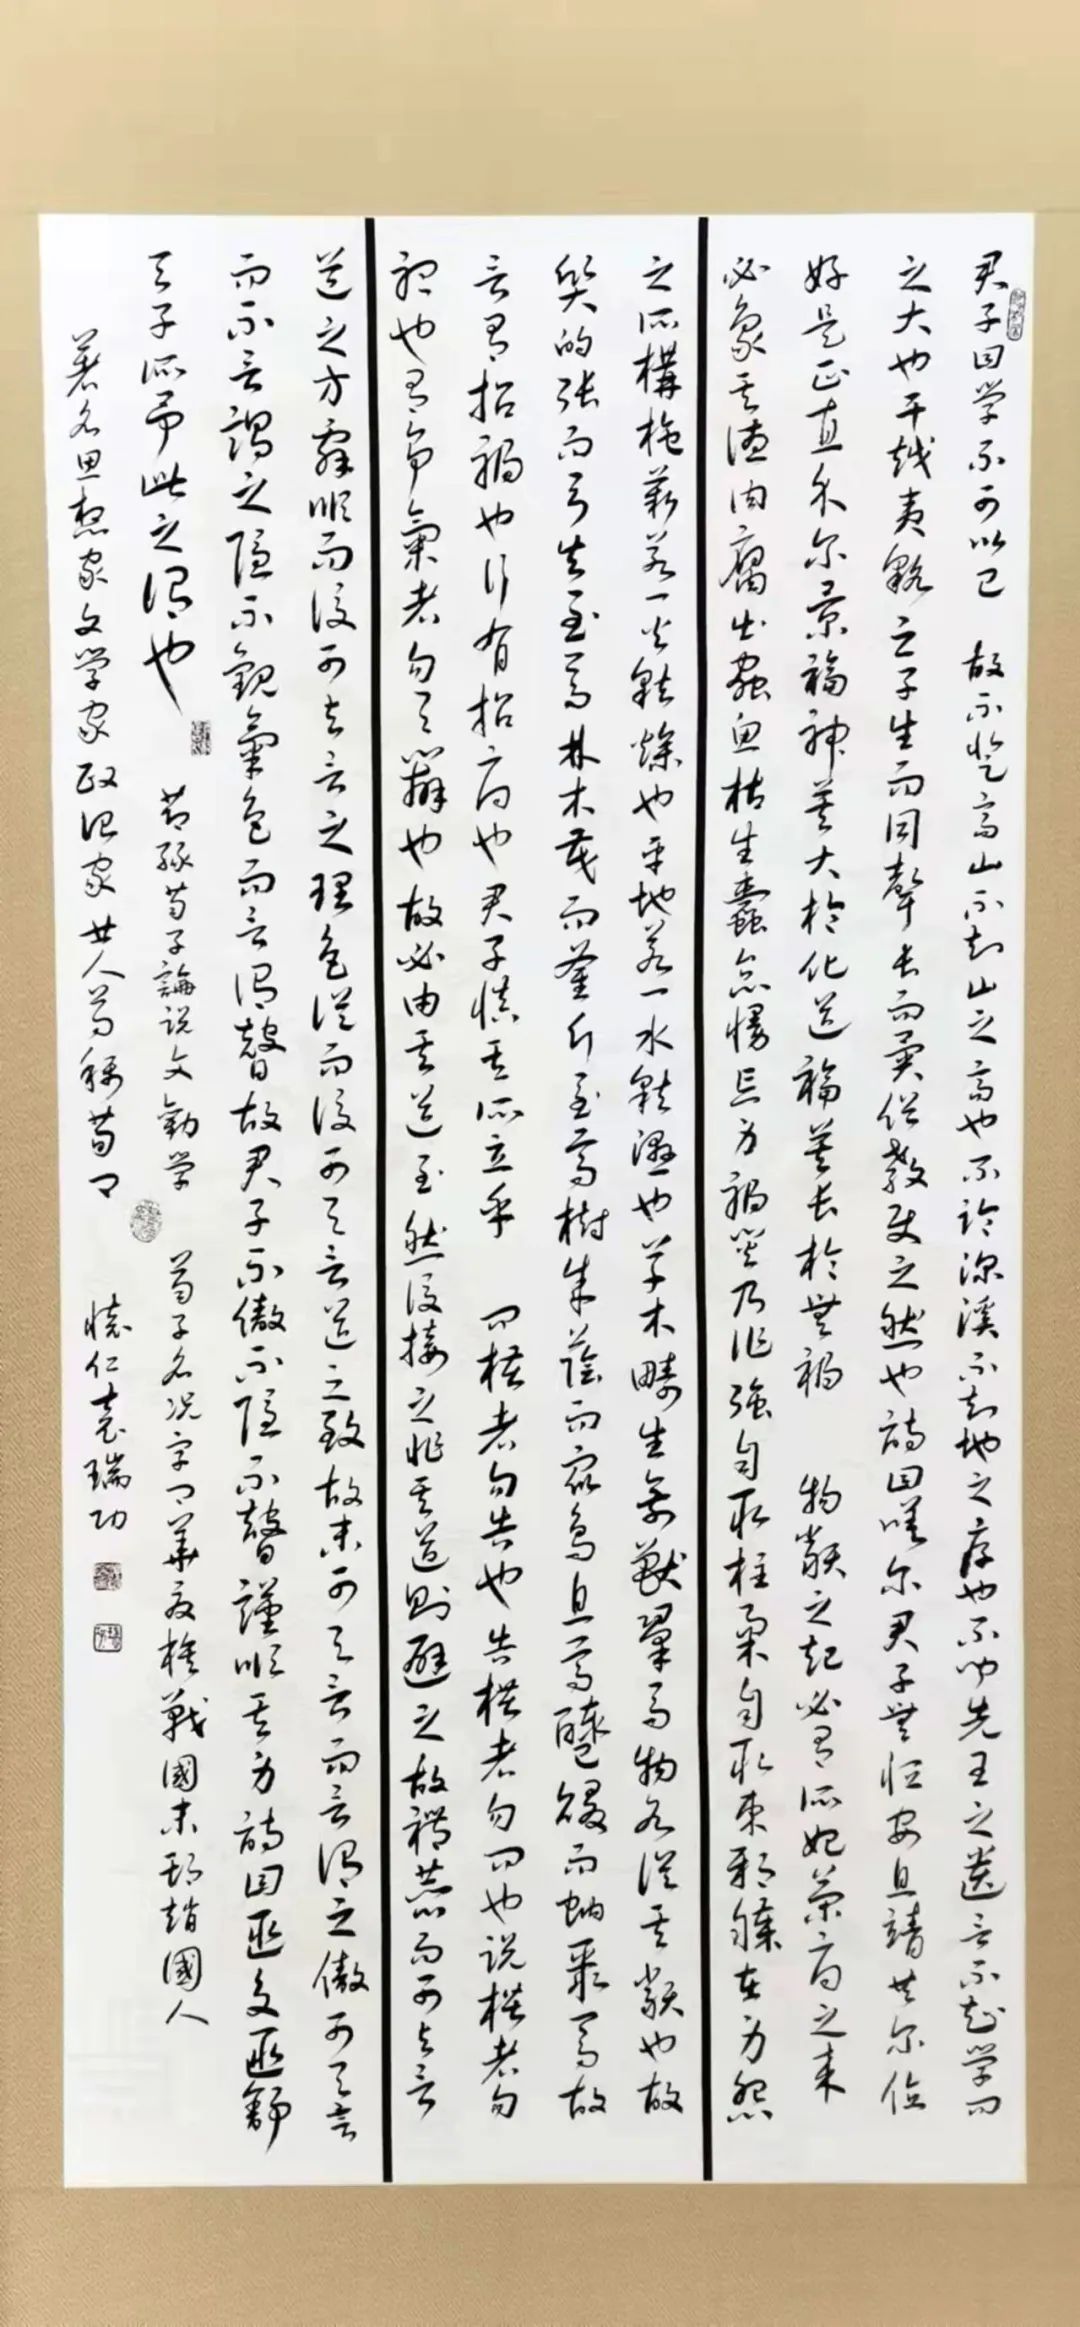 君子曰学不可以已 故不登高山不知山之高也不临深溪不知地之厚也不闻先王之遗言不知学问
之大也干越夷貉之子生而同聲长而異俗教使之然也诗曰嗟尔君子無恒安息靖共尔位
好是正直介尔景福神莫大於化道福莫长於無禍 物類之起必有所始荣辱之来
必象其德肉腐出蟲魚枯生蠹怠慢忘身禍災乃作强自取柱柔自取束邪穢在身怨
之所構施薪若一火就燥也平地若一水就濕也草木疇生禽獸羣焉物各從其類也故
質的张而弓矢至焉林木茂而斧斤至焉樹成蔭而眾鸟息焉醯酸而蚋聚焉故
言有招禍也行有招辱也君子慎其所立乎 问楛者勿告也告楛者勿问也说楛者勿
聽也有争氣者勿与辯也故必由其道至然後接之非其道则避之故禮恭而後可与言
道之方辭顺而後可与言道之理色從而後可与言道之致故未可与言而言谓之傲可与言
而不言谓之隐不觀氣色而言谓瞽故君子不傲不隐不瞽謹順其身诗曰匪交匪舒
天子所予此之谓也 节录荀子論说文勸学 荀子名况字卿華夏族戰國末期趙國人
著名思想家文学家政治家世人尊称荀卿 懷仁袁瑞功